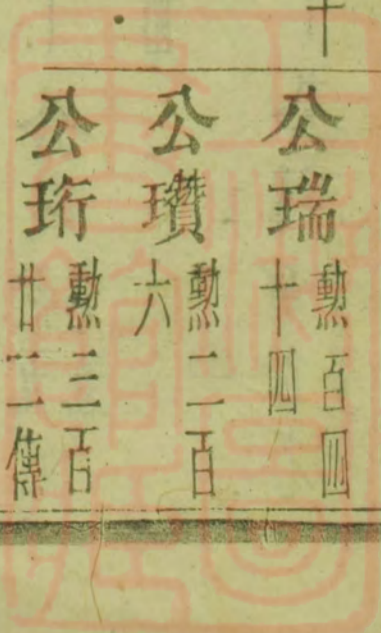 十
公瑞 勲百四十四
公瓚 勲二百六
公珩 勲三百廿二傳